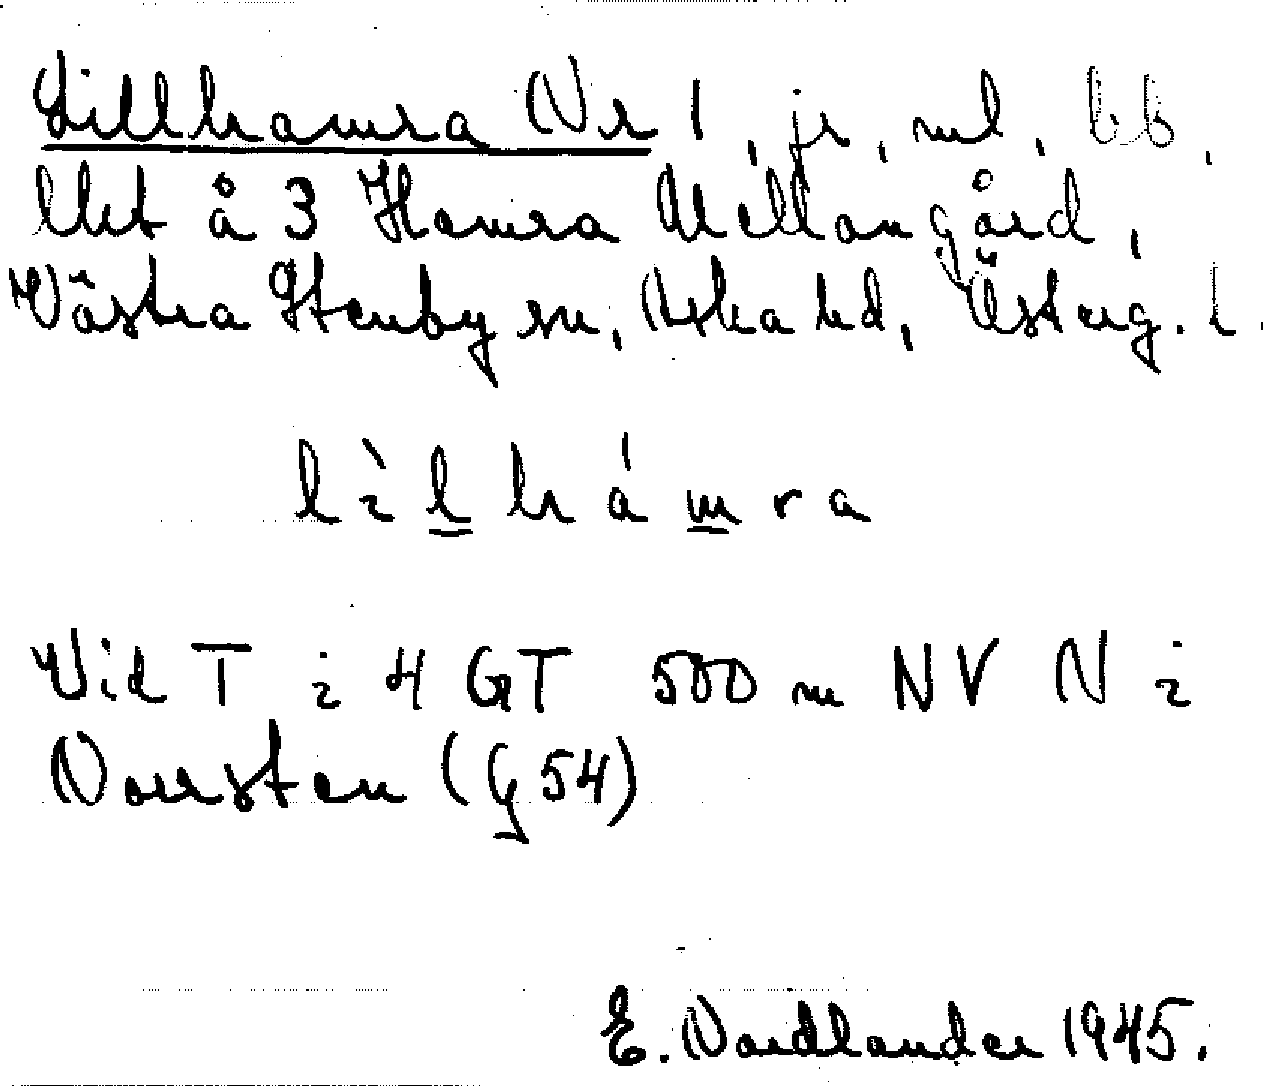 Lillhamra Nr 1, jr, ml, bb,
lht å 3 Hamra Mellangård,
Västra Stenby sn, Aska hd, Österg. l.
lìlhámra
Vid T i 4 GT 500 m NV N i
Norrsten (G 54)
E. Nordlander 1945.